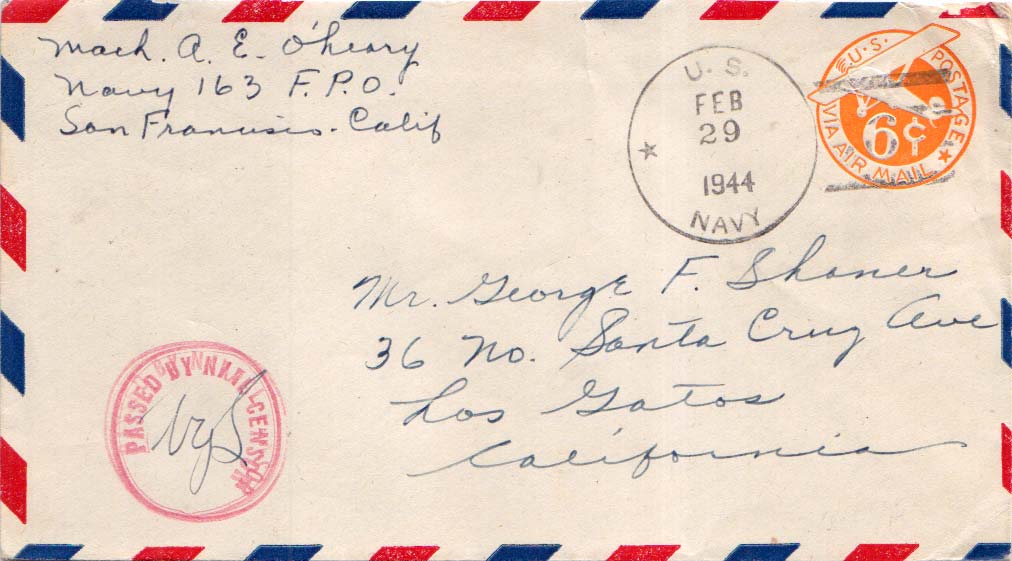 Mach. A. E. O'Leary
Navy 163 F.P.O.
San Francisco. Calif
U.S.
FEB
29
1944
NAVY
U.S. POSTAGE
6¢
VIA AIR MAIL
Mr. George F. Shaner
36 No. Santa Cruz Ave
Los Gatos
California
PASSED BY NAVAL CENSOR